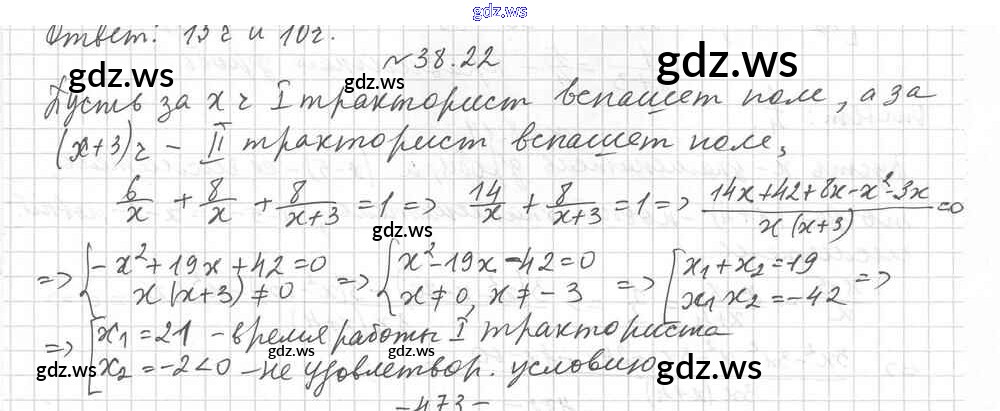 gdz.ws
Ответ: 15 ч и 10 ч.
№38.22
gdz.ws
gdz.ws
gdz.ws
Пусть за x ч I тракторист вспашет поле, а за
(x+3) ч – II тракторист вспашет поле,
6/x + 8/x + 8/(x+3) = 1 => 14/x + 8/(x+3) = 1 => (14x+42+8x-x²-3x)/(x(x+3)) = 0
gdz.ws
=> { -x²+19x+42=0 => { x²-19x-42=0 => [ x₁+x₂=19 =>
x(x+3)≠0 x≠0, x≠-3 x₁x₂=-42
=> [ x₁=21 – время работы I тракториста
gdz.ws
x₂=-2<0 – не удовлетвор. условию
gdz.ws
gdz.ws
gdz.ws
-473-